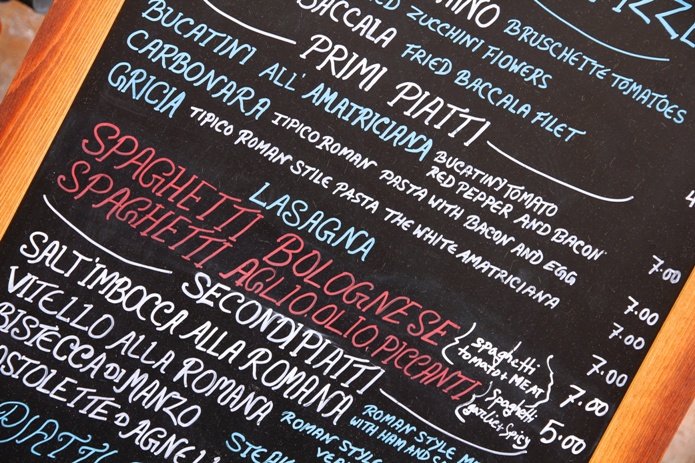 BACCALA FRIED ZUCCHINI FLOWERS BRUSCHETTE TOMATOES
FRIED BACCALA FILET
PRIMI PIATTI
BUCATINI ALL'AMATRICIANA BUCATINY TOMATO
RED PEPPER AND BACON 7.00
CARBONARA TIPICO ROMAN PASTA WITH BACON AND EGG 7.00
GRICIA TIPICO ROMAN STILE PASTA THE WHITE AMATRICIANA 7.00
LASAGNA 7.00
SPAGHETTI BOLOGNESE spaghetti tomato + MEAT 7.00
SPAGHETTI AGLIO OLIO PICCANTI spaghetti garlic + spicy 5.00
SECONDI PIATTI
SALT'IMBOCCA ALLA ROMANA ROMAN STYLE
WITH HAM AND
VITELLO ALLA ROMANA ROMAN STYLE
BISTECCA DI MANZO